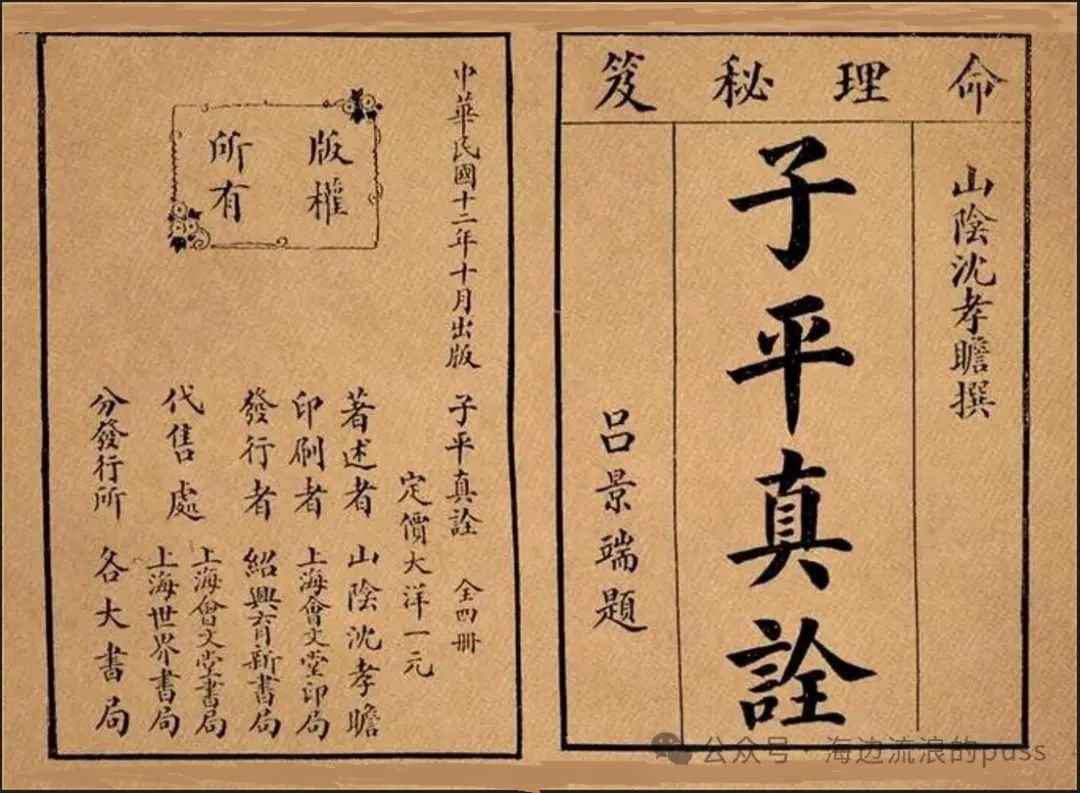 命理秘笈
山陰沈孝瞻撰
子平真詮
呂景端題
中華民國十二年十月出版
子平真詮 全四册
定價大洋一元
著述者 山陰沈孝瞻
印刷者 上海會文堂印局
發行者 紹興育新書局
代售處 上海會文堂書局
上海世界書局
分發行所 各大書局
版權
所有
公众号 · 海边流浪的puss